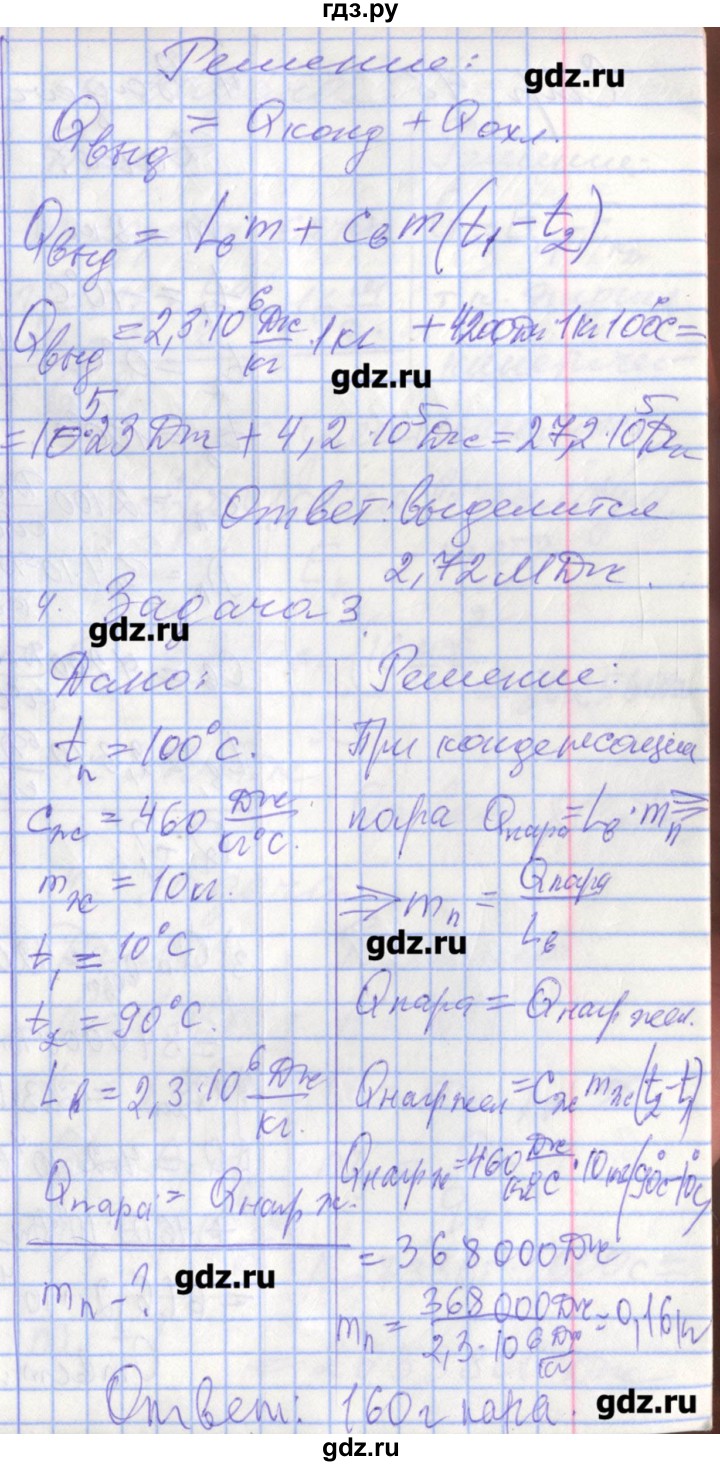 гдз.ру
Решение:
gdz.ru
Qвыд = Qконд + Qохл.
Qвыд = Lв·m + cв m(t₁ - t₂)
Qвыд = 2,3·10⁶ Дж/кг · 1кг + 4200 1кг 100°C =
gdz.ru
= 10⁵·23 Дж + 4,2·10⁵ Дж = 27,2·10⁵ Дж
Ответ: выделится
2,72 МДж.
4. Задача 3.
gdz.ru
Дано:
tп = 100°C.
cж = 460 Дж/кг°C.
mж = 10кг.
t₁ = 10°C
t₂ = 90°C.
Lв = 2,3·10⁶ Дж/кг.
Qпара = Qнагр ж.
mп - ?
gdz.ru
Решение:
При конденсации
пара Qпара = Lв·mп ⇒
⇒ mп = Qпара/Lв
gdz.ru
Qпара = Qнагр жел.
Qнагр жел = cж mж(t₂-t₁)
Qнагр ж = 460 Дж/кг°C · 10кг(90°C-10°C)
= 368000 Дж
mп = 368000 Дж / 2,3·10⁶ Дж/кг = 0,16кг
Ответ: 160г пара.
gdz.ru
gdz.ru